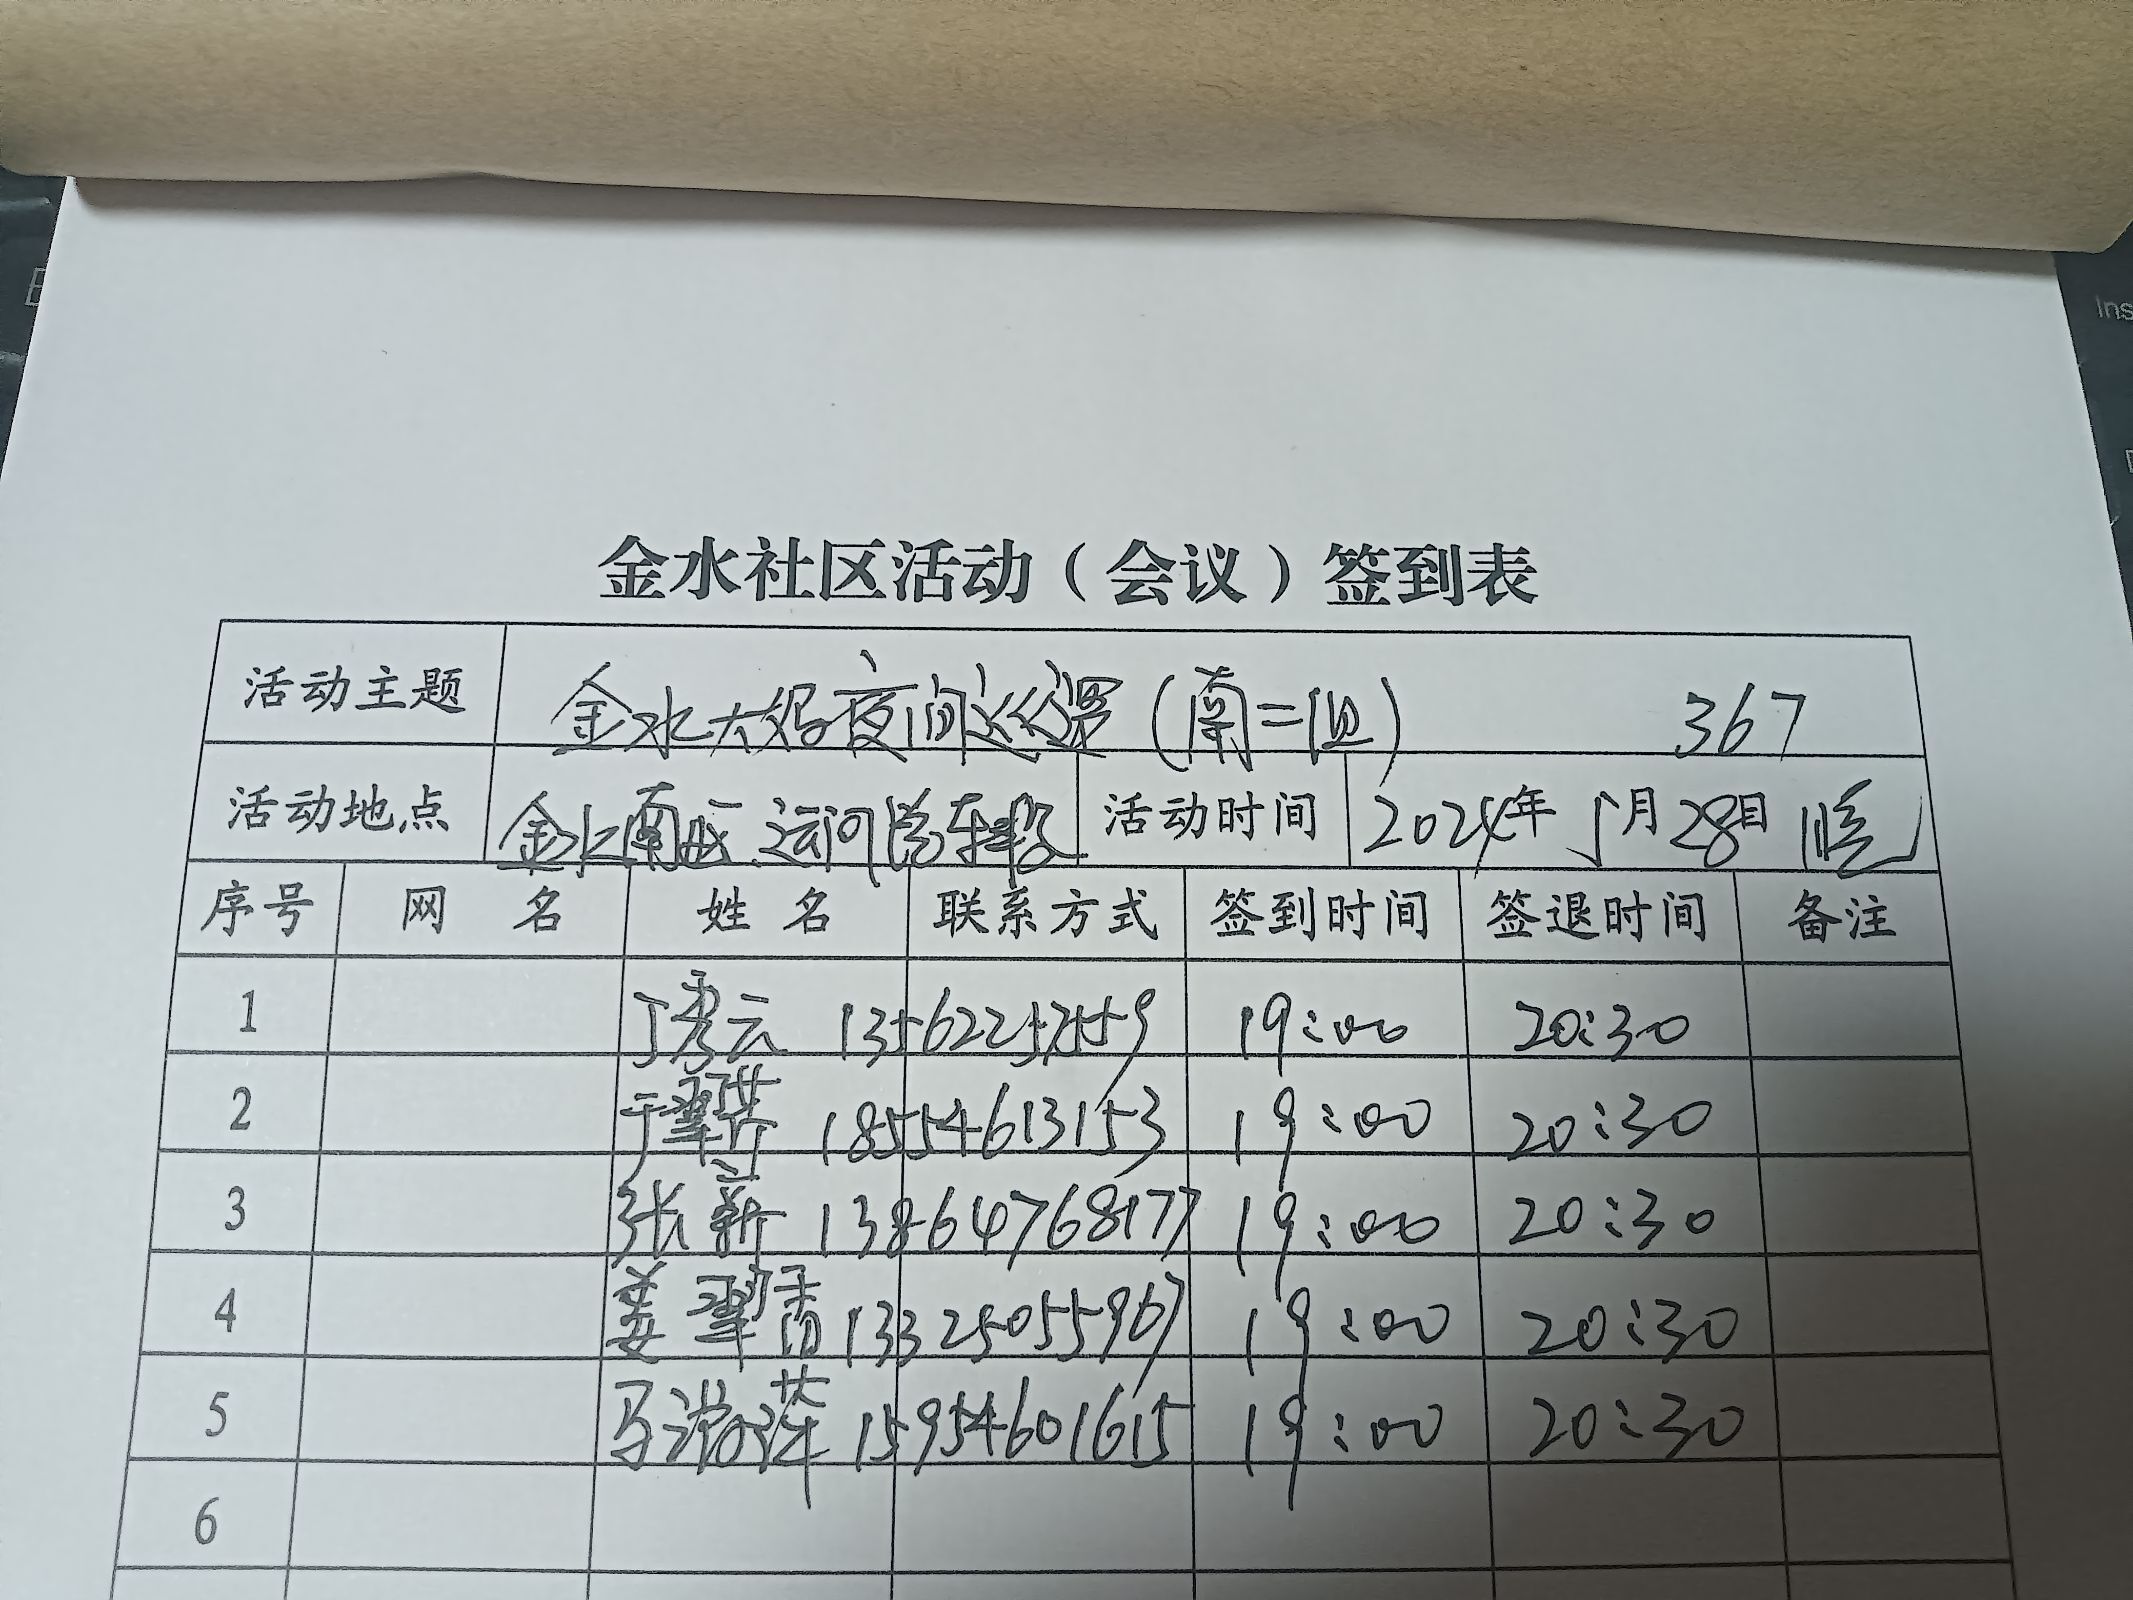 Ins
金水社区活动（会议）签到表
活动主题 金水大妈夜间巡逻(南二组) 367
活动地点 金水南 活动时间 2024年5月28日 晚
序号 网名 姓名 联系方式 签到时间 签退时间 备注
1 丁秀云 13562257559 19:00 20:30
2 于翠芹 18554613153 19:00 20:30
3 张新 13864768177 19:00 20:30
4 姜翠香 13325055967 19:00 20:30
5 马 萍 15954601615 19:00 20:30
6